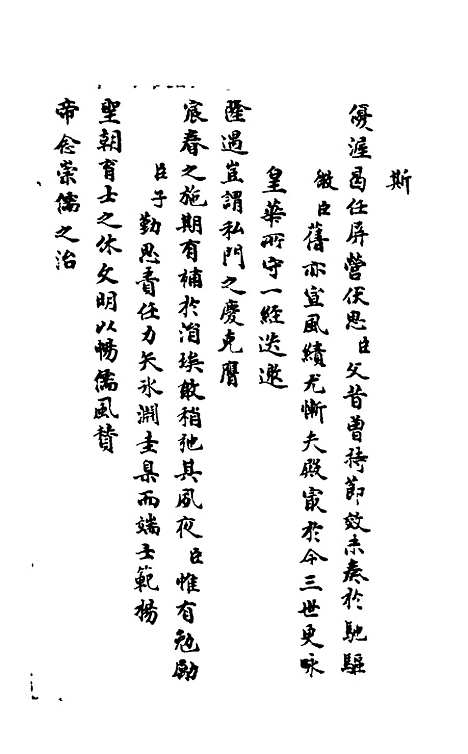 斯
優渥曷任屏營伏思臣父昔曾持節效未奏於馳驅
敬臣舊亦宣風績尤慚夫殿最於今三世更咏
皇華所守一經迭遞
隆遇豈謂私門之慶克膺
宸眷之施期有補於涓埃敢稍弛其夙夜臣惟有勉勵
臣子勤思責任力矢冰淵圭臬而端士範揚
聖朝育士之休文明以暢儒風贊
帝念崇儒之治